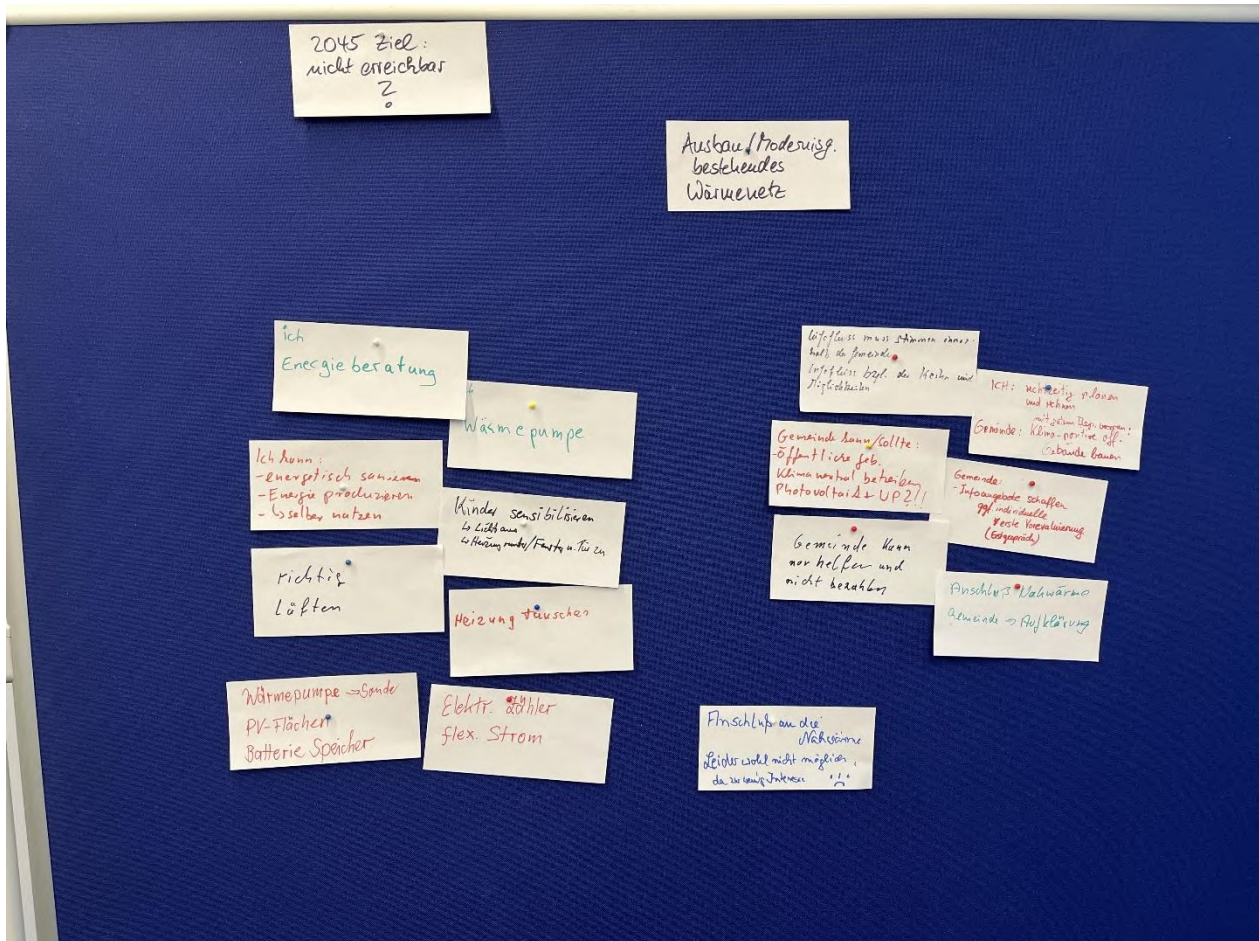 2045 Ziel:
nicht erreichbar
?
Ausbau/Modernisg.
bestehendes
Wärmenetz
ich
Energieberatung
Wärmepumpe
Ich kann:
- energetisch sanieren
- Energie produzieren
- ↳ selber nutzen
Kinder sensibilisieren
↳ Licht aus
↳ Heizung runter/Fenster u. Tür zu
richtig
Lüften
Heizung tauschen
Wärmepumpe → Sonde
PV-Flächen
Batterie Speicher
Elektr. Zähler
flex. Strom
Infofluss muss stimmen inner-
halb der Gemeinde
Infofluss bzgl. der Kosten und
Möglichkeiten
ICH: rechtzeitig planen
und rechnen
mit
Gemeinde: Klima-positive öff.
Gebäude bauen
Gemeinde kann/sollte:
- Öffentliche Geb.
Klimaneutral betreiben
Photovoltaik + UP?!!
Gemeinde:
- Infoangebote schaffen
ggf. individuelle
erste Vorevaluierung
(Erstgespräch)
Gemeinde kann
nur helfen und
nicht bezahlen
Anschluß Nahwärme
Gemeinde → Aufklärung
Anschluß an die
Nahwärme
Leider wohl nicht möglich,
da zu wenig Interesse